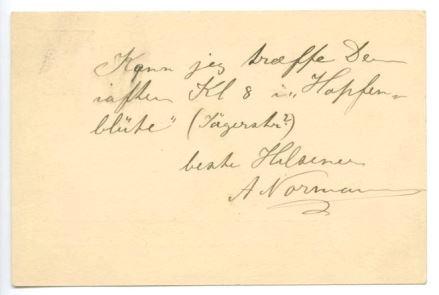 Kan jeg træffe Dem
iaften Kl 8 i „Hopfen-
blüte" (Jägerstr?)
beste Hilsener
A Normann